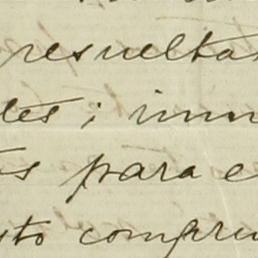 resulta
tes; inm
s para e
sto compru